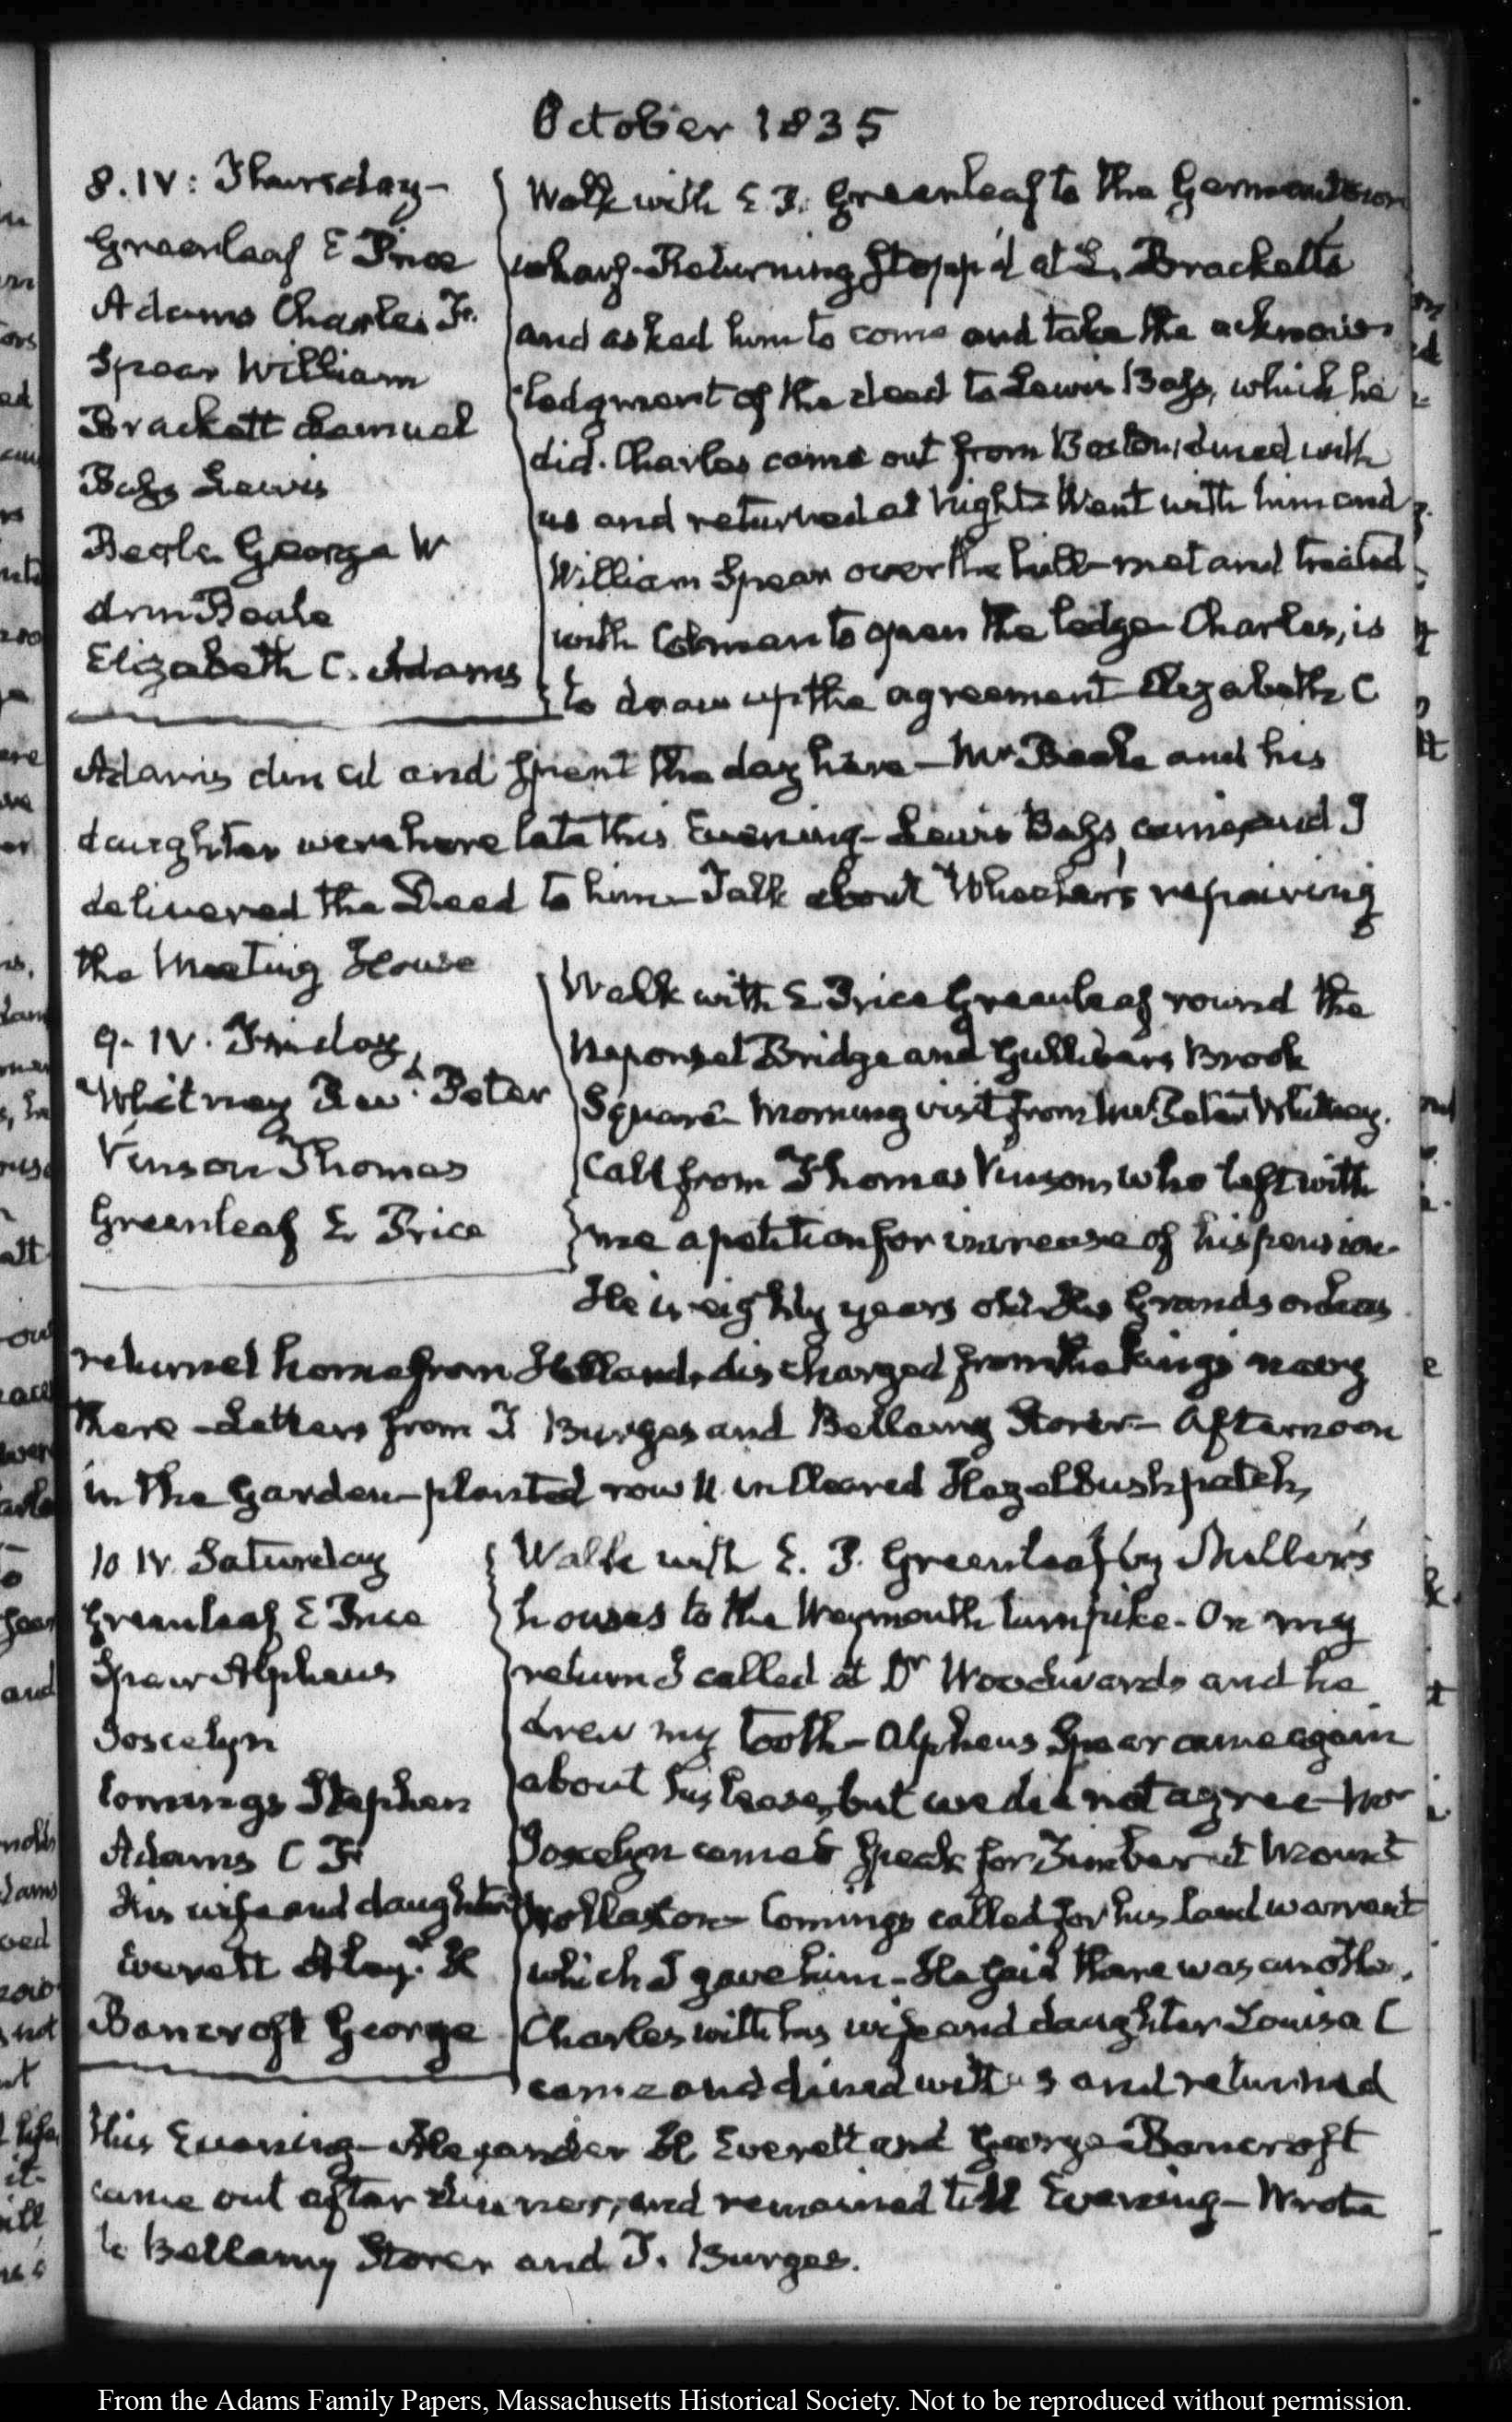 October 1835
8. IV: Thursday-
Greenleaf E Price
Adams Charles Fr.
Spear William
Brackett Samuel
Bass Lewis
Beale George W
Ann Beale
Elizabeth C. Adams
Walk with E. P. Greenleaf to the Germantown
wharf- Returning stopp'd at S. Brackett's
and asked him to come and take the acknow-
ledgment of the deed to Lewis Bass, which he
did. Charles came out from Boston, dined with
us and returned at Night- Went with him and
William Spear over the hill- met and treated
with Colman to open the ledge- Charles, is
to draw up the agreement- Elizabeth C
Adams dined and spent the day here- Mr Beale and his
daughter were here late this Evening- Lewis Bass, came, and I
delivered the Deed to him- Talk about Wheeler's repairing
the Meeting House
9. IV. Friday,
Whitney Revd. Peter
Vinson Thomas
Greenleaf E Price
Walk with E Price Greenleaf round the
Neponset Bridge and Gulliver's Brook
Square- Morning visit from Mr Peter Whitney.
Call from Thomas Vinson, who left with
me a petition for increase of his pension-
He is eighty years old- His Grandson
returned home from Holland, discharged from the king's navy
there- Letters from T Burges and Bellamy Storer- Afternoon
in the Garden- planted row 11 in Cleared Hazelbush patch,
10 IV. Saturday
Greenleaf E Price
Spear Alpheus
Joscelyn
Comings Stephen
Adams C F
His wife and daughter
Everett Alexr. H
Bancroft George
Walk with E. P. Greenleaf by Miller's
houses to the Weymouth turnpike- On my
return I called at Dr Woodwards and he
drew my tooth- Alpheus Spear came again
about his lease, but we did not agree- Mr
Joscelyn came to speak for Timber at Mount
Wollaston- Comings called for his land warrant
which I gave him- He said there was another.
Charles with his wife and daughter Louisa C
came and dined with us and returned
this Evening- Alexander H Everett and George Bancroft
came out after dinner, and remained till Evening- Wrote
to Bellamy Storer and T. Burges.
From the Adams Family Papers, Massachusetts Historical Society. Not to be reproduced without permission.